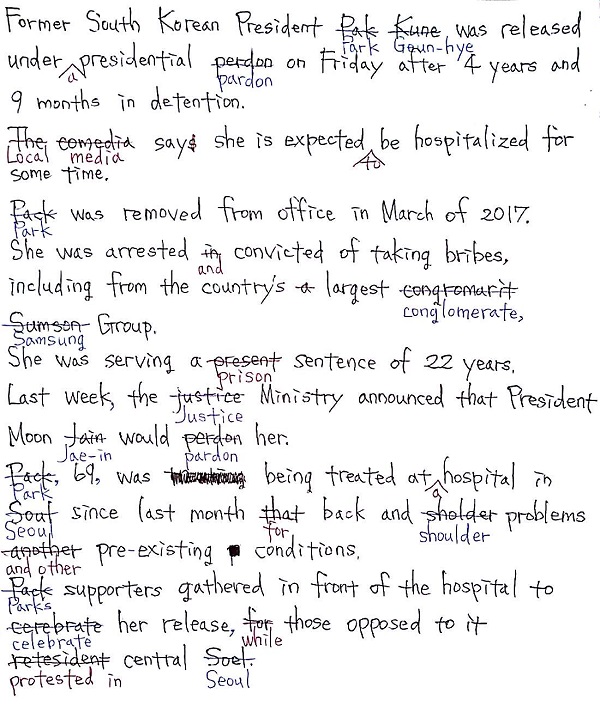 Former South Korean President Pak Kune was released
Park Geun-hye
under presidential perdon on Friday after 4 years and
a pardon
9 months in detention.
The comedia says she is expected be hospitalized for
Local media to
some time.
Pack was removed from office in March of 2017.
Park
She was arrested in convicted of taking bribes,
and
including from the country's a largest congromarit
conglomerate,
Sumson Group.
Samsung
She was serving a present sentence of 22 years.
prison
Last week, the justice Ministry announced that President
Justice
Moon Jain would perdon her.
Jae-in pardon
Pack, 69, was being treated at hospital in
Park a
Souf since last month that back and sholder problems
Seoul for shoulder
another pre-existing conditions.
and other
Pack supporters gathered in front of the hospital to
Parks
cerebrate her release, for those opposed to it
celebrate while
retesident central Soel.
protested in Seoul